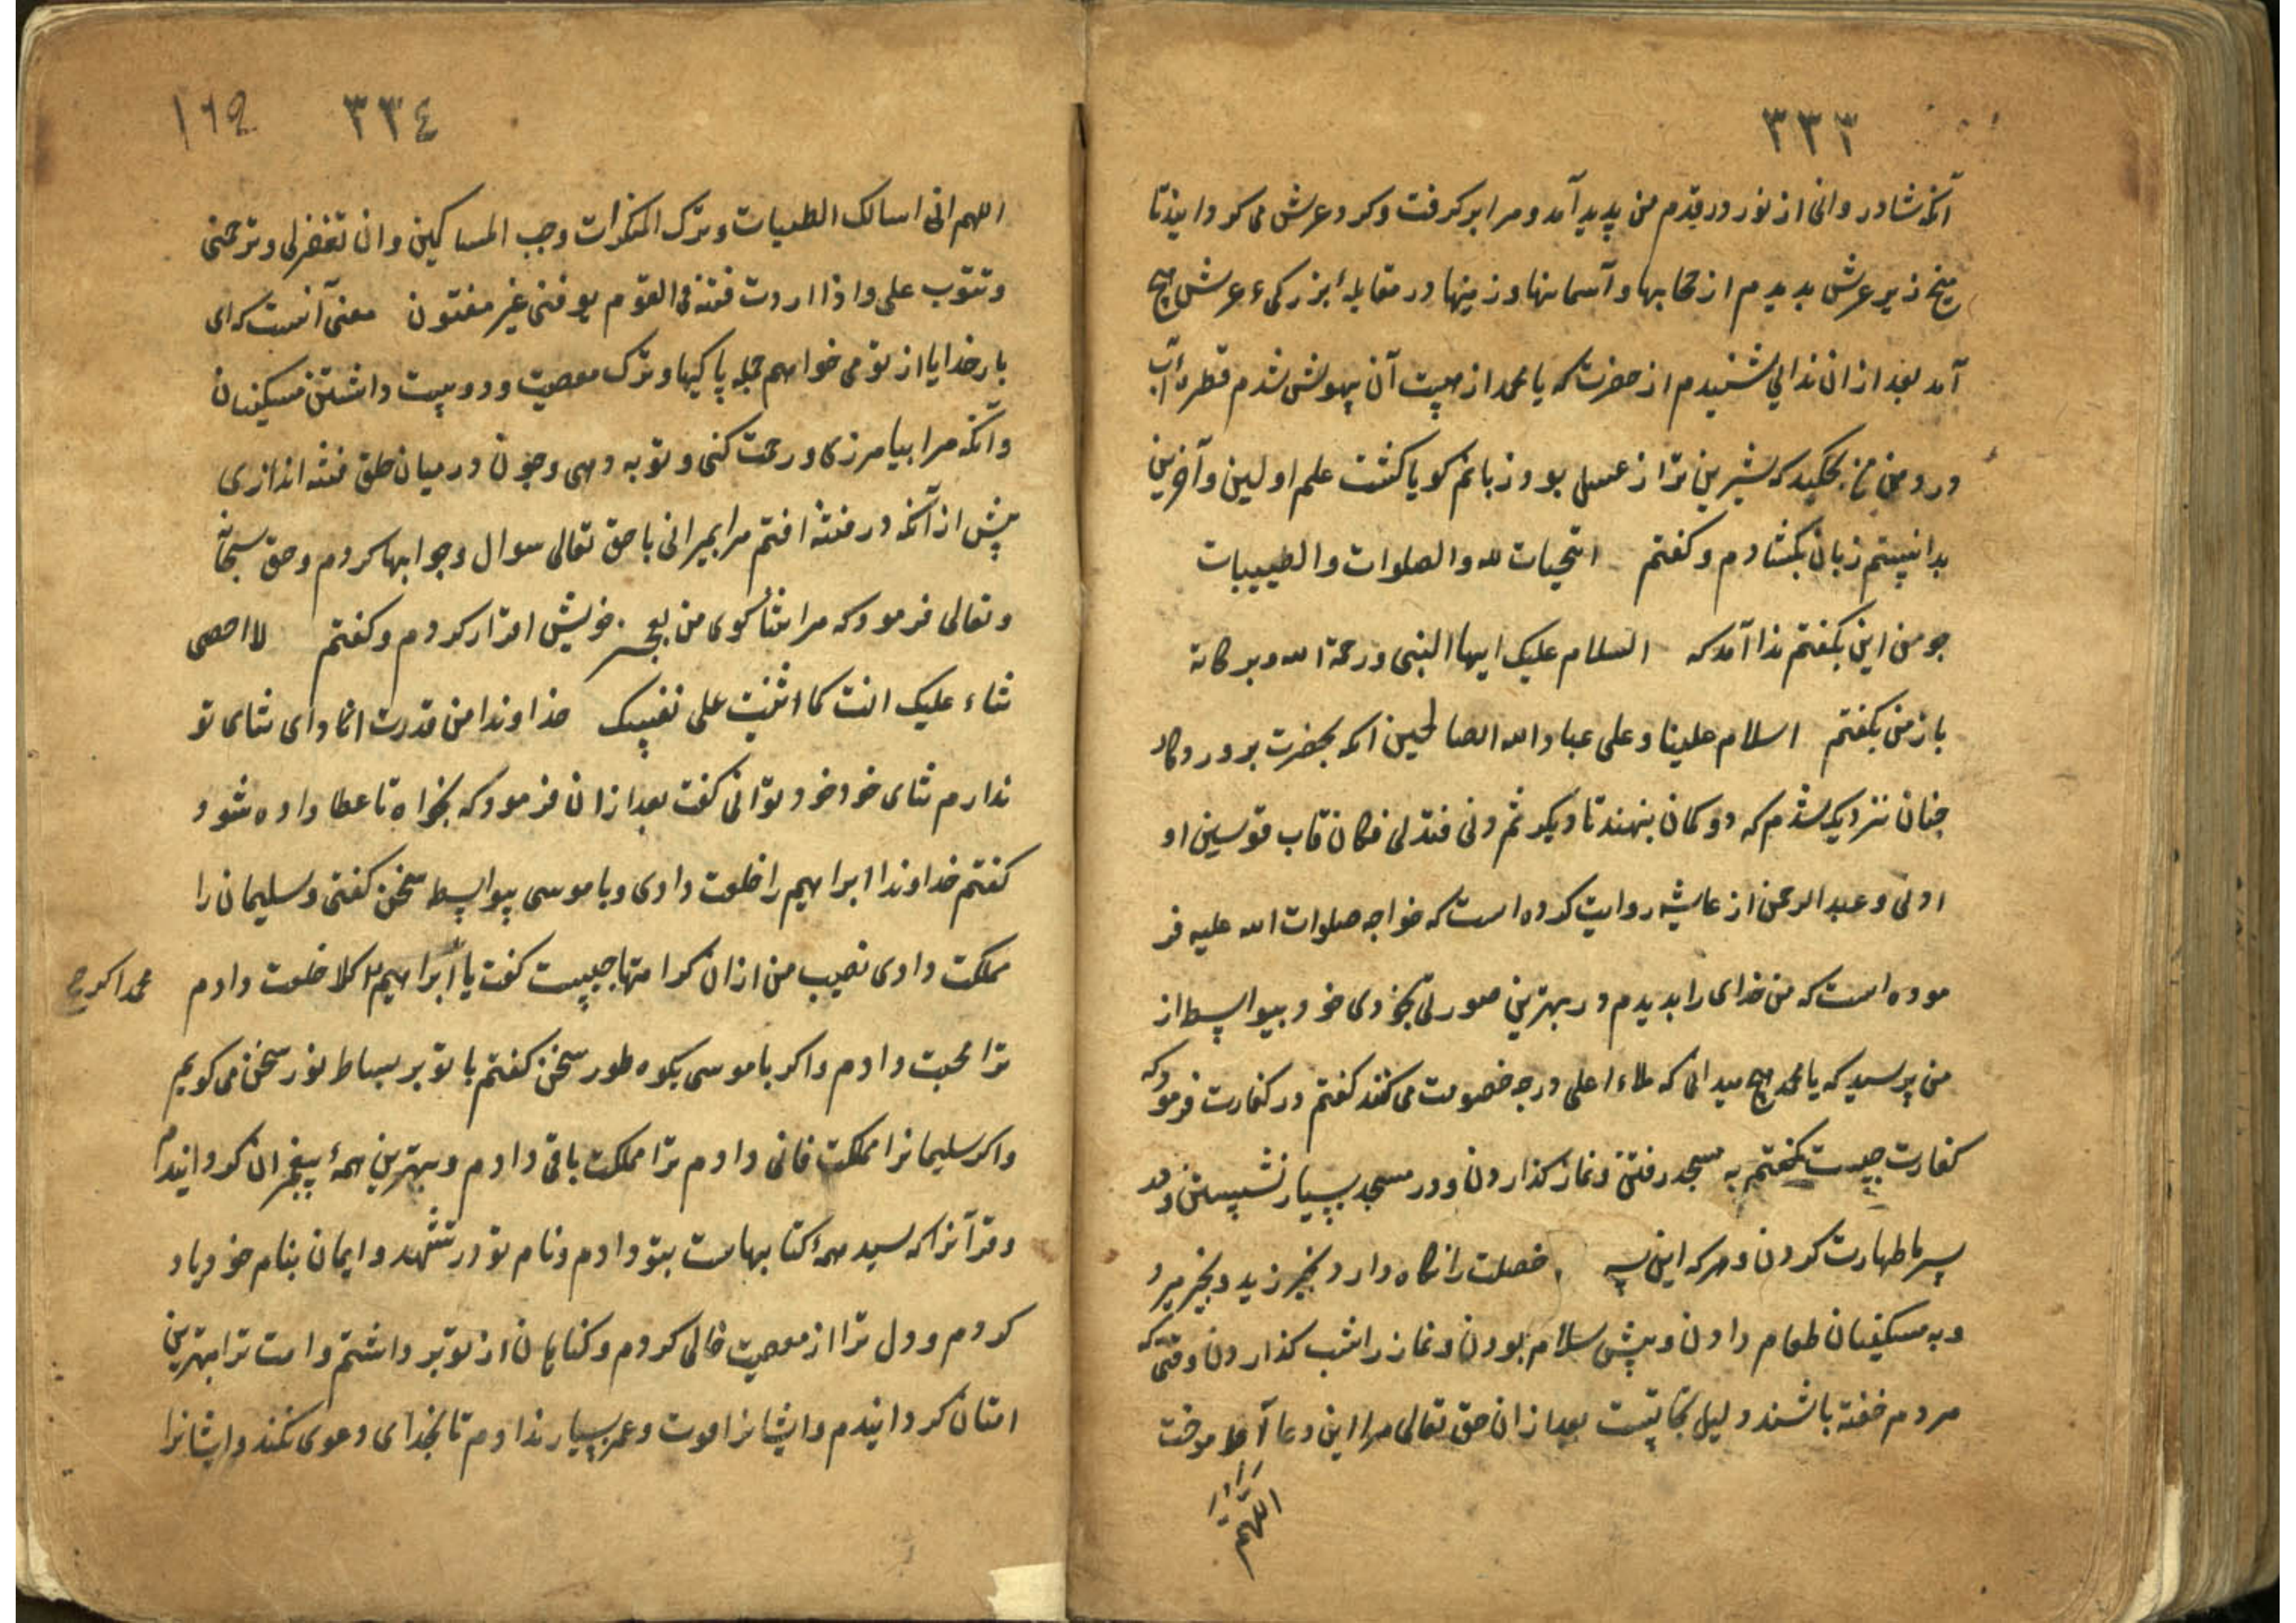 ۳۳۳
آنکه شادروانی از نور در قدم من پدید آمد و مرا برکرفت و کرد عرش می کردانید تا
میخ زیر عرش بدیدم از حجابها و آسمانها و زمینها در مقابله بزرکیء عرش هیچ
آمد بعد از ان ندایی شنیدم از حضرت که یا محمد از هیبت آن بیهوش شدم قطرهٔ آب
در دهن من بچکید که شیرین تر از عسل بود و زبانم کویا کشت علم اولین و آخرین
بدانستم زبان بکشادم و کفتم التحیات لله والصلوات والطیبات
جو من این بکفتم ندا آمد که السلام علیک ایها النبی ورحمة الله وبرکاته
باز من بکفتم اسلام علینا وعلی عباد الله الصالحین انکه بحضرت بروردکار
جنان نزدیک شدم که دو کمان بنهند تا دیکر ثم دنی فتدلی فکان قاب قوسین او
ادنی و عبد الرحمن از عایشه روایت کرده است که خواجه صلوات الله علیه فر
موده است که من خدای را بدیدم در بهترین صورتی بخودی خود بیواسطه از
من پرسید که یا محمد هیچ میدانی که ملاء اعلی درجه خصومت می کنند کفتم در کفارت فرمود که
کفارت چیست کفتم به مسجد رفتن و نماز کذاردن و در مسجد بسیار نشستن و در
سرما طهارت کردن و هر که این سه خصلت را نکاه دارد بخیر زید و بخیر میرد
و به مسکینان طعام دادن و پیش سلام بودن و نماز را شب کذاردن وقتی که
مردم خفته باشند دلیل نجاتست بعد از ان حق تعالی مرا این دعا آموخت
اللهم
۳۳٤
۱۶۵
اللهم انی اسالک الطیبات وترک المنکرات وحب المساکین وان تغفرلی وترحمنی
وتتوب علی واذا اردت فتنه فی القوم توفنی غیر مفتون معنی آنست که ای
بار خدایا از تو می خواهم جمله پاکیها و ترک معصیت و دوست داشتن مسکینان
و آنکه مرا بیامرزی و رحمت کنی و توبه دهی وجون در میان خلق فتنه اندازی
پیش از آنکه در فتنه افتم مرا بمیرانی با حق تعالی سوال وجوابها کردم وحق سبحانه
وتعالی فرمود که مرا ثنا کوی من بعجز خویش اقرار کردم و کفتم لا احصی
ثناء علیک انت کما اثنیت علی نفسک خداوندا من قدرت ادای ثنای تو
ندارم ثنای خود خود توانی کفت بعد از ان فرمود که بخواه تا عطا داده شود
کفتم خداوندا ابراهیم را خلعت دادی و با موسی بیواسطه سخن کفتی و سلیمان را
مملکت دادی نصیب من از ان کرامتها جیست کفت یا ابراهیم را کلاه خلعت دادم
محمد اکر چه
ترا محبت دادم و اکر با موسی بکوه طور سخن کفتم با تو بر بساط نور سخن می کویم
و اکر سلیمانرا مملکت فانی دادم ترا مملکت باقی دادم و بهترین همهٔ پیغمبران کردانیدم
و قرآنرا که سید همهٔ کتابهاست بتو دادم و نام تو در تشهد و ایمان بنام خود یاد
کردم و دل ترا از معصیت خالی کردم و کناهان از تو بر داشتم و امت ترا بهترین
امتان کردانیدم و ایشانرا قوت و عمر بسیار ندادم تا بخدای دعوی نکنند و ایشانرا